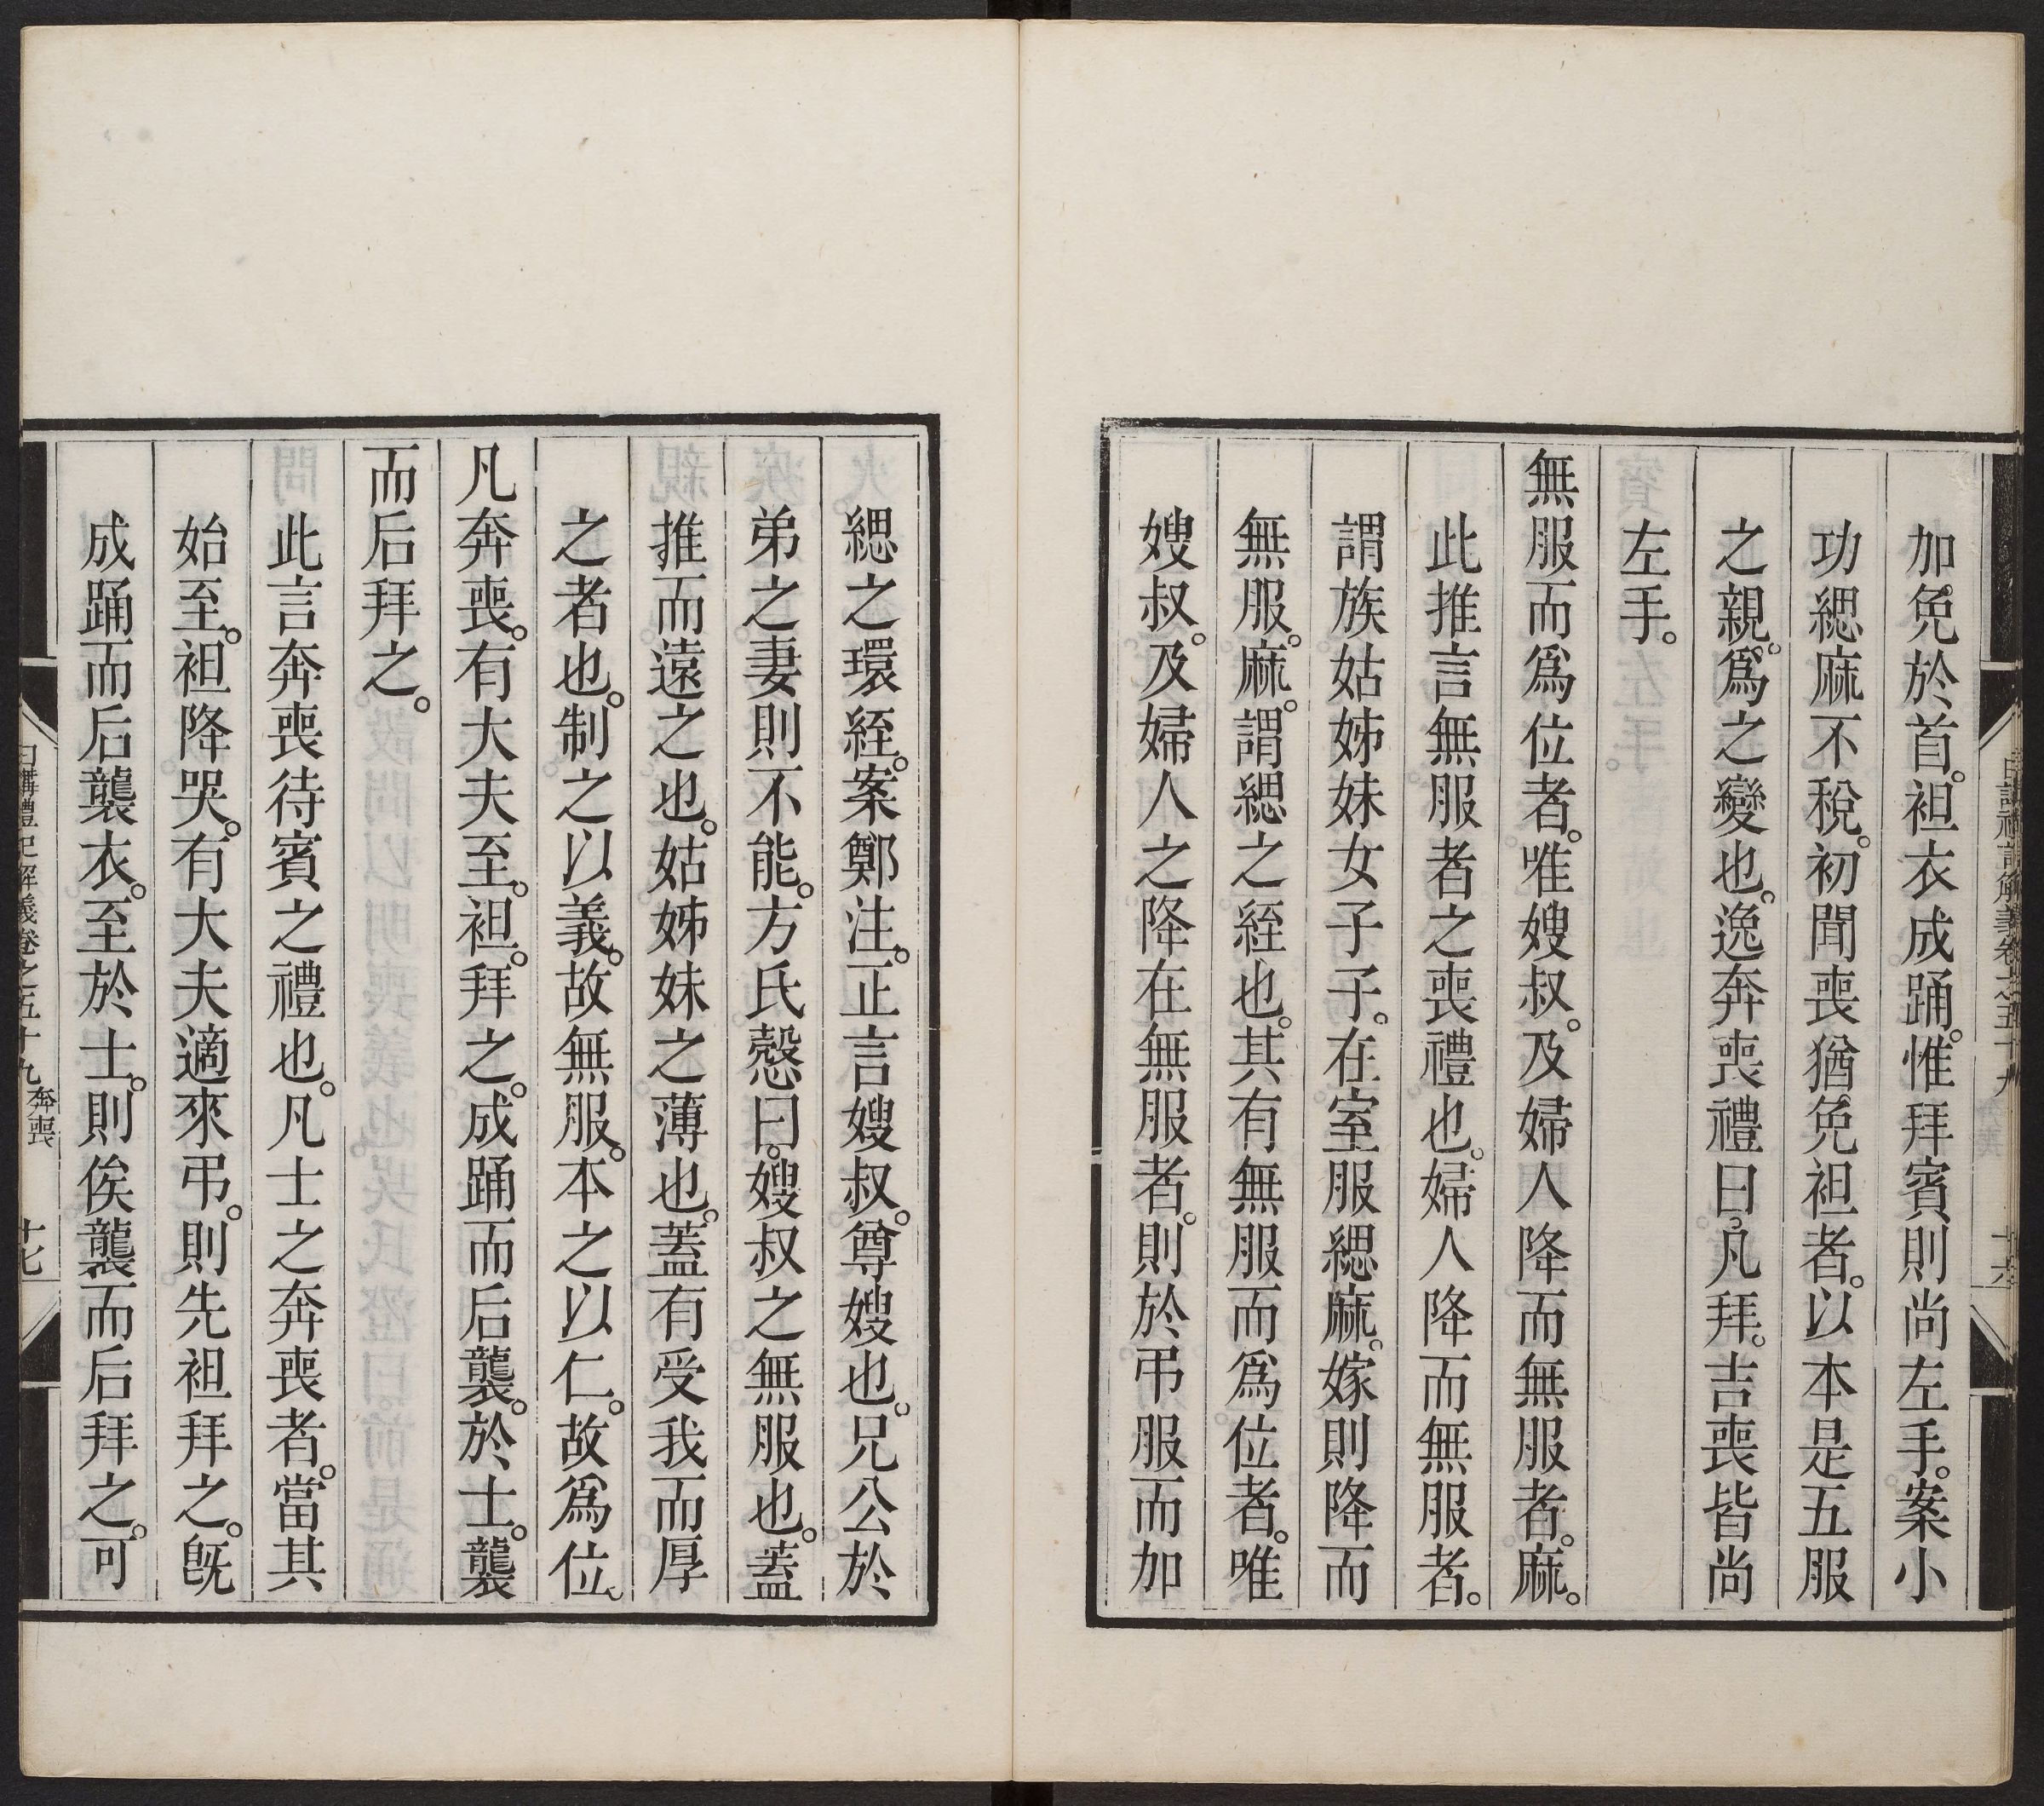 加。免於首。袒衣成踊。惟拜賓則尚左手。案小
功緦麻不稅。初聞喪猶免袒者。以本是五服
之親。爲之變也。逸奔喪禮曰。凡拜。吉喪皆尚
左手。
無服而爲位者。唯嫂叔。及婦人降而無服者。麻。
此推言無服者之喪禮也。婦人降而無服者。
謂族姑姊妹女子子。在室服緦麻。嫁則降而
無服。麻。謂緦之絰也。其有無服而爲位者。唯
嫂叔。及婦人之降在無服者。則於弔服而加
緦之環絰。案鄭注。正言嫂叔。尊嫂也。兄公於
弟之妻則不能。方氏慤曰。嫂叔之無服也。蓋
推而遠之也。姑姊妹之薄也。蓋有受我而厚
之者也。制之以義。故無服。本之以仁。故爲位。
凡奔喪。有大夫至。袒。拜之。成踊而后襲。於士。襲
而后拜之。
此言奔喪待賓之禮也。凡士之奔喪者。當其
始至。袒降哭。有大夫適來弔。則先袒拜之。旣
成踊而后襲衣。至於士。則俟襲而后拜之。可
日講禮記解義卷之五十九 奔喪 十七